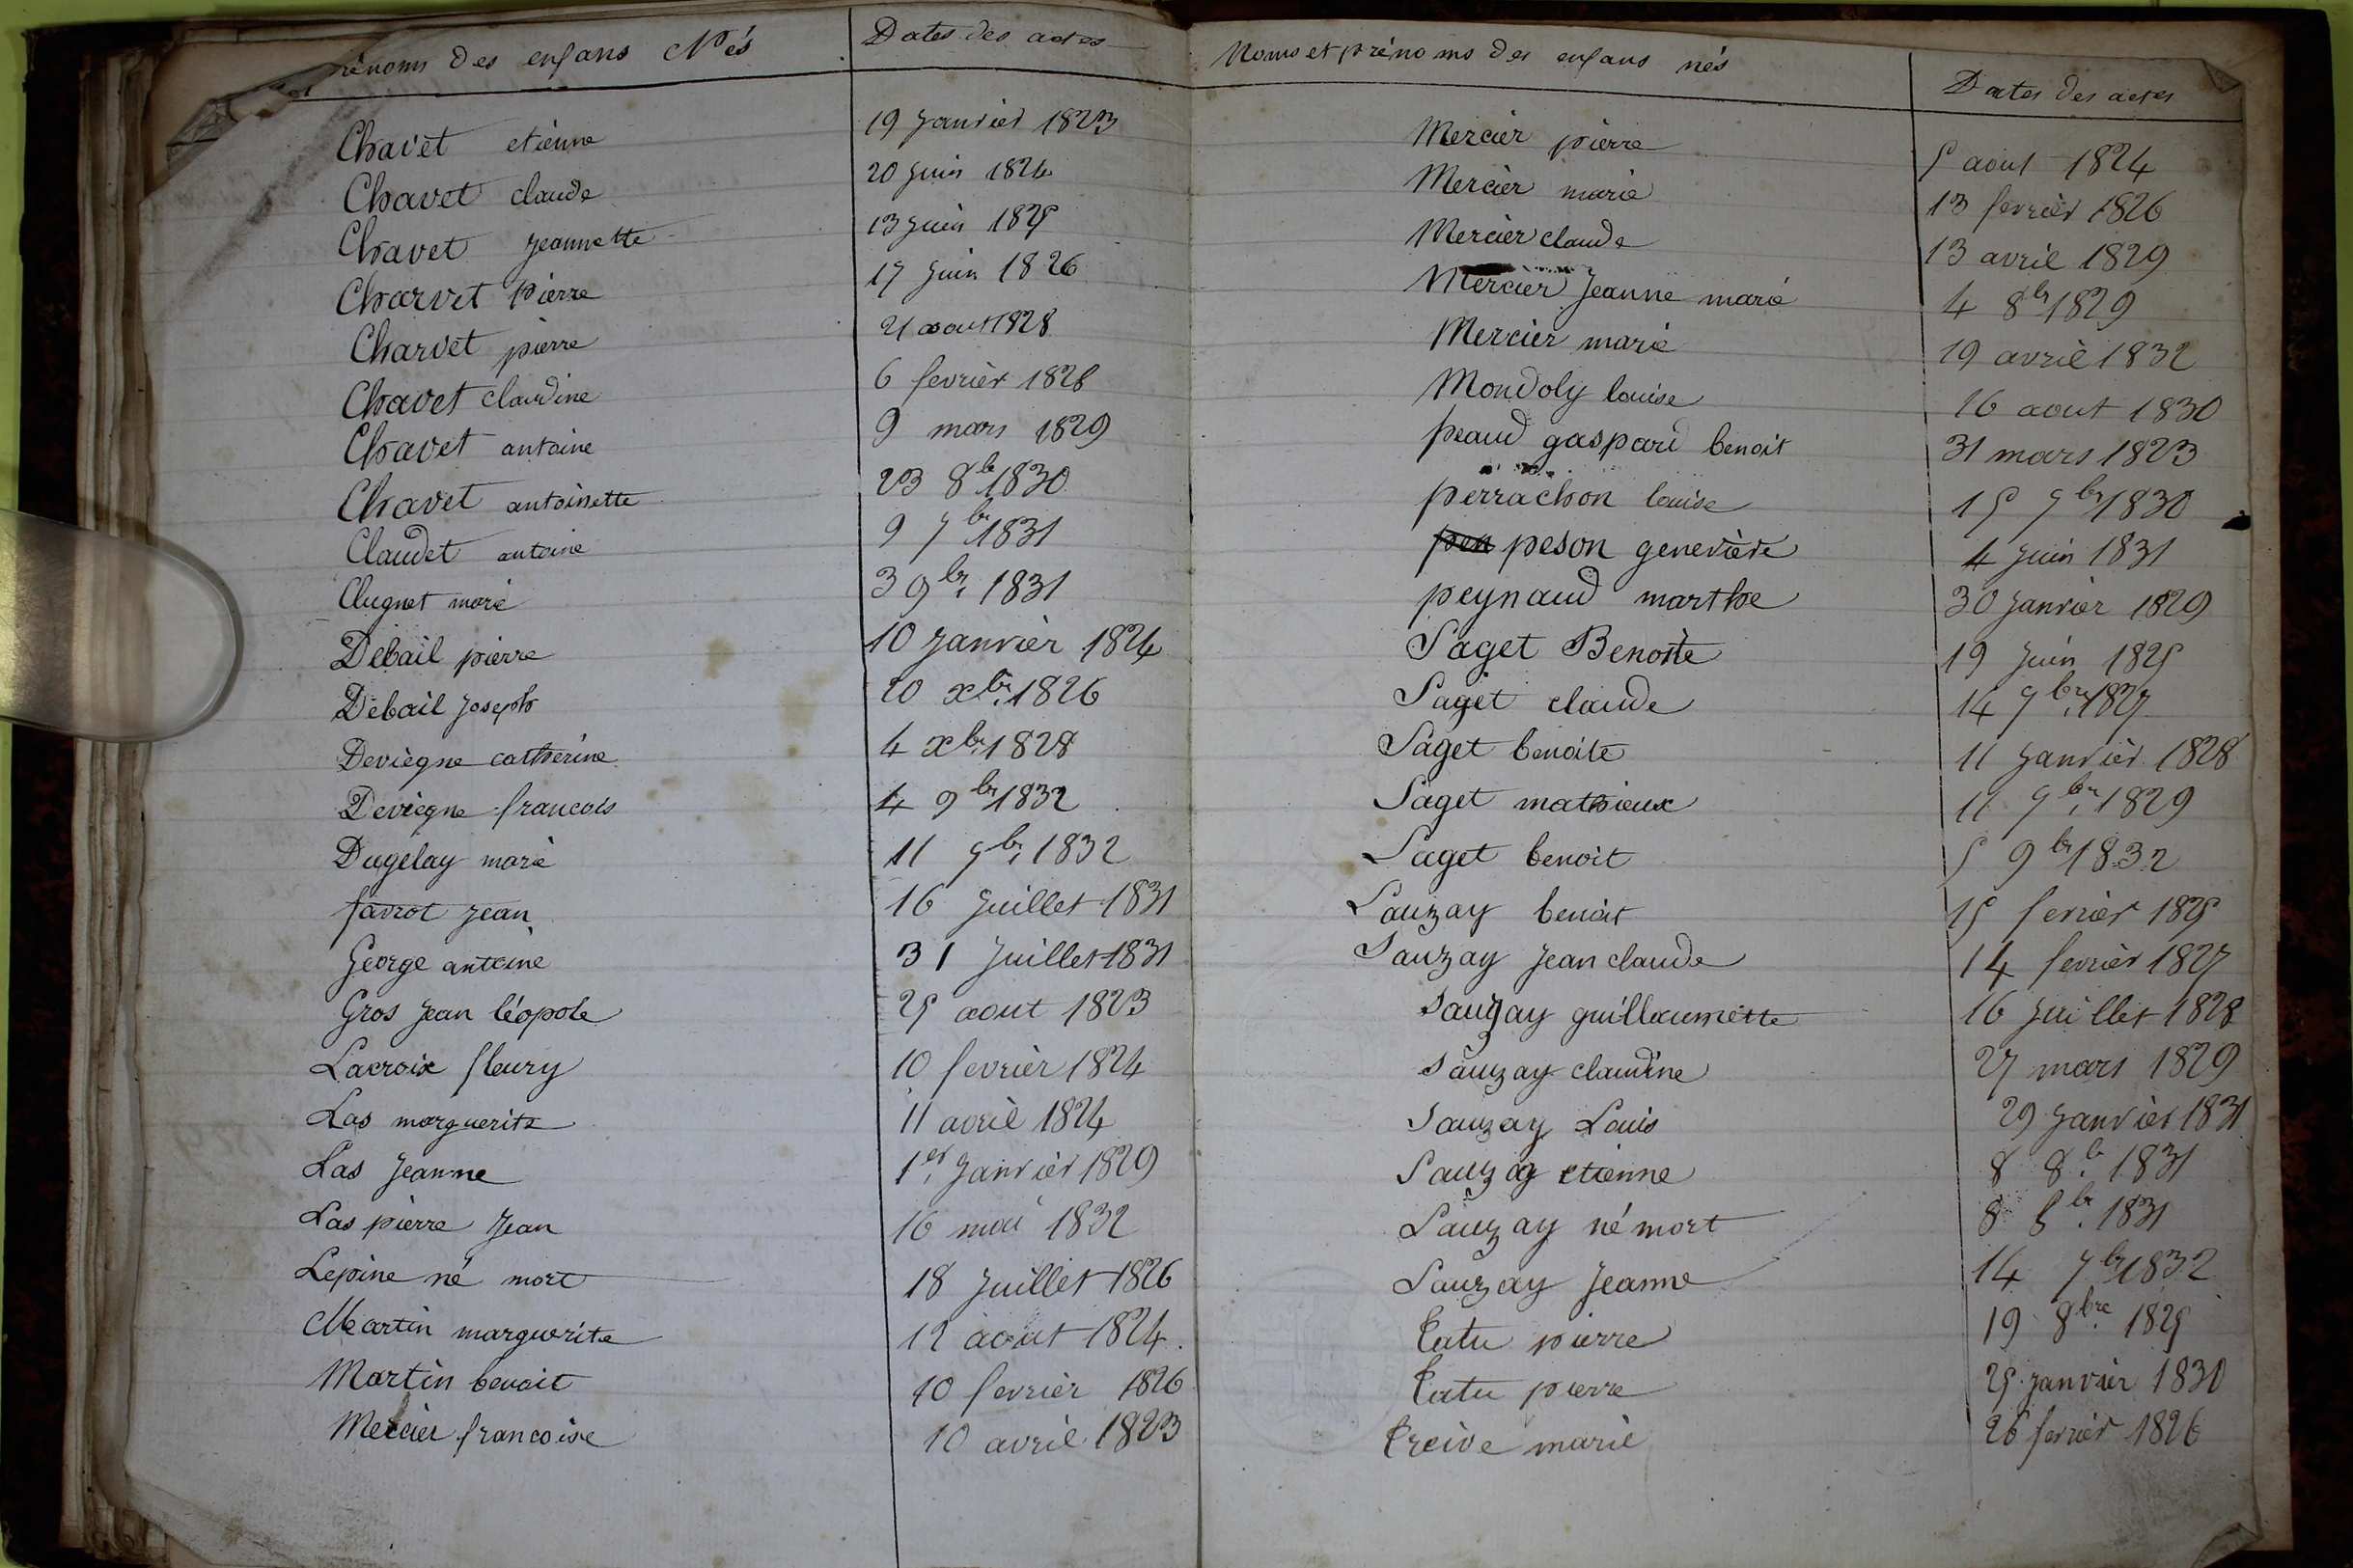 rénoms des enfans Nés Dates des actes
Chavet etienne 19 Janvier 1823
Chavet claude 20 Juin 1824
Chavet Jeannette 13 Juin 1825
Charvet Pierre 17 Juin 1826
Charvet pierre 21 aout 1828
Chavet claudine 6 fevrier 1828
Chavet antoine 9 mars 1829
Chavet antoinette 23 8br 1830
Claudet antoine 9 7br 1831
Clugnet marie 3 9br. 1831
Debail pierre 10 Janvier 1824
Debail Joseph 20 xbr. 1826
Deviegne catherine 4 xbr. 1828
Deviegne francois 4 9br 1832
Dugelay marie 11 9br. 1832
favrot Jean 16 Juillet 1831
George antoine 31 Juillet 1831
Gros Jean léopole 25 aout 1823
Lacroix fleury 10 fevrier 1824
Las marguerite 11 avril 1824
Las Jeanne 1er. Janvier 1829
Las pierre Jean 16 mai 1832
Lepine né mort 18 Juillet 1826
Martin marguerite 12 aout 1824.
Martin benoit 10 fevrier 1826
Mercier francoise 10 avril 1823
Noms et prénoms des enfans nés Dates des actes
Mercier pierre 5 aout 1824
Mercier marie 13 fevrier 1826
Mercier claude 13 avril 1829
Mercier Jeanne marie 4 8br 1829
Mercier marie 19 avril 1832
Mondoly louise 16 aout 1830
peaud gaspard benoit 31 mars 1823
perrachon louise 15 9br 1830
pen peson genevieve 4 Juin 1831
peynaud marthe 30 Janvier 1829
Saget Benoite 19 Juin 1825
Saget claude 14 9bre. 1827
Saget benoite 11 Janvier 1828
Saget mathieux 11 9br. 1829
Saget benoit 5 9br 1832
Sauzay benoit 15 fevrier 1825
Sauzay Jean claude 14 fevrier 1827
Sauzay guillaumette 16 Juillet 1828
Sauzay claudine 27 mars 1829
Sauzay Louis 29 Janvier 1831
Sauzay etienne 8 8b. 1831
Sauzay né mort 8 8br. 1831
Sauzay Jeanne 14 7br 1832
tatu pierre 19 8bre. 1825
tatu pierre 25 janvier 1830
treive marie 26 fevrier 1826